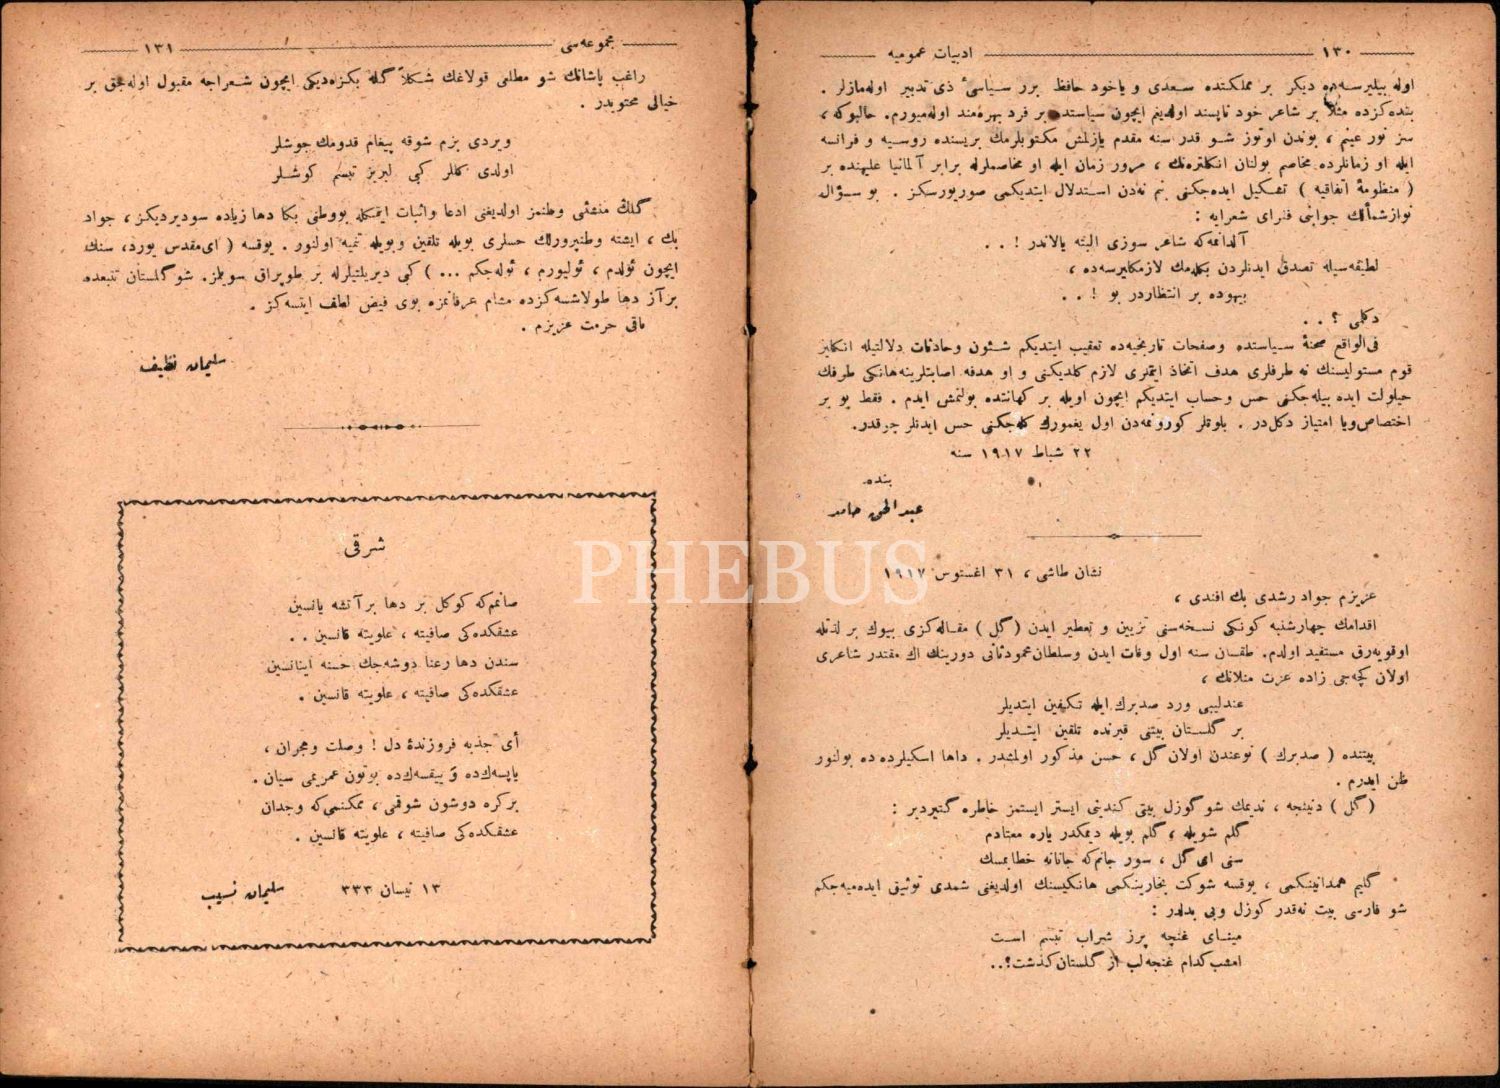 ١٣٠ ادبيات عموميه
اوله بيليرسه ده ديكر بر مملكتده سعدى و ياخود حافظ برر سياسىٔ ذى تدبير اوله مازلر .
بنده كزده مثلا بر شاعر خود ناپسند اولديغم ايچون سياستده بر فرد بهره مند اوله ميورم. حالبوكه ،
سز نور عينم ، بوندن اوتوز شو قدر سنه مقدم يازلمش مكتوبلرمك بريسنده روسيه و فرانسه
ايله او زمانلرده مخاصم بولنان انكلتره نك ، مرور زمان ايله او مخاصملرله برابر آلمانيا عليهنده بر
( منظومهٔ اتفاقيه ) تشكيل ايده جكنى بم نه دن استدلال ايتديكمى صوريورسكز . بو سؤال
نوازشمآلك جوابنى فقراى شعرايه :
آلدانمه كه شاعر سوزى البته يالاندر ! . .
لطيفه سيله تصديق ايدنلردن بكله مك لازمكليرسه ده ،
بيهوده بر انتظاردر بو ! . .
دكلمى ؟ . .
فى الواقع صحنهٔ سياستده وصفحات تاريخيه ده تعقيب ايتديكم شئون وحادثات دلالتيله انكليز
قوم مستوليسنك نه طرفلرى هدف اتخاذ ايتملرى لازم كلديكنى و او هدفه اصابتلرينه هانكى طرفك
حيلولت ايده بيله جكنى حس وحساب ايتديكم ايچون اويله بر كهانتده بولنمش ايدم . فقط بو بر
اختصاص ويا امتياز دكلدر . بلوتلر كورونمه دن اول يغمورك كله جكنى حس ايدنلر چوقدر.
٢٢ شباط ١٩١٧ سنه
بنده
عبدالحق حامد
نشان طاشى ، ٣١ اغستوس ١٩١٧
عزيزم جواد رشدى بك افندى ،
اقدامك چهارشنبه كونكى نسخه سنى تزيين و تعطير ايدن (گل) مقاله كزى بيوك بر لذتله
اوقويه رق مستفيد اولدم. طقسان سنه اول وفات ايدن وسلطان محمود ثانى دورينك اك مقتدر شاعرى
اولان كچه جى زاده عزت منلانك ،
عندليبى ورد صدبرك ايله تكفين ايتديلر
بر گلستان بيتنى قبرنده تلقين ايتديلر
بيتنده ( صدبرك ) نوعندن اولان گل ، حسن مذكور اولمشدر . داها اسكيلرده ده بولنور
ظن ايدرم .
(گل ) دنينجه ، نديمك شو گوزل بيتى كندينى ايستر ايستمز خاطره گتيردير :
گلم شويله ، گلم بويله ديمكدر ياره معتادم
سنى اى گل ، سور جانم كه جانانه خطابمسك
كليم همدانينكمى ، يوقسه شوكت بخارينكمى هانكيسنك اولديغنى شمدى توثيق ايده ميه جكم
شو فارسى بيت نه قدر كوزل وبى بدلدر :
ميناى غنچه پرز شراب تبسم است
امشب كدام غنچه لب از گلستان كذشت؟..
مجموعه سى ١٣١
راغب پاشانك شو مطلعى قولاغك شكلاً گله بكزه ديكى ايچون شعراجه مقبول اوله جق بر
خيالى محتويدر .
ويردى بزم شوقه پيغام قدومك جوشلر
اولدى كللر كبى لبريز تبسم گوشلر
گلك منشئى وطنمز اولديغنى ادعا واثبات ايتمكله بو وطنى بكا دها زياده سوديرديكز ، جواد
بك ، ايشته وطنپرورلك حسلرى بويله تلقين وبويله تنميه اولنور . يوقسه ( اى مقدس يورد، سنك
ايچون ئولدم ، ئوليورم ، ئوله جكم ... ) كبى ديريلتيلرله بر طوپراق سويلمز. شو گلستان تتبعده
بر آز دها طولاشسه كزده مشام عرفانمزه بوى فيض لطف ايتسه كز .
باقى حرمت عزيزم .
سليمان نظيف
شرقى
صانمكه كوكل بر دها بر آتشه يانسين
عشقكده كى صافيته ، علويته قانسين . .
سندن دها رعنا دوشه جك حسنه اينانسين
عشقكده كى صافيته ، علويته قانسين .
أى جذبه فروزندهٔ دل ! وصلت وهجران ،
ياپسه ك ده و ييقسه ك ده بوتون عمريمى سيان .
بر كره دوشون شوقمى ، ممكنمى كه وجدان
عشقكده كى صافيته ، علويته قانسين .
١٣ نيسان ٣٣٣
سليمان نسيب
PHEBUS